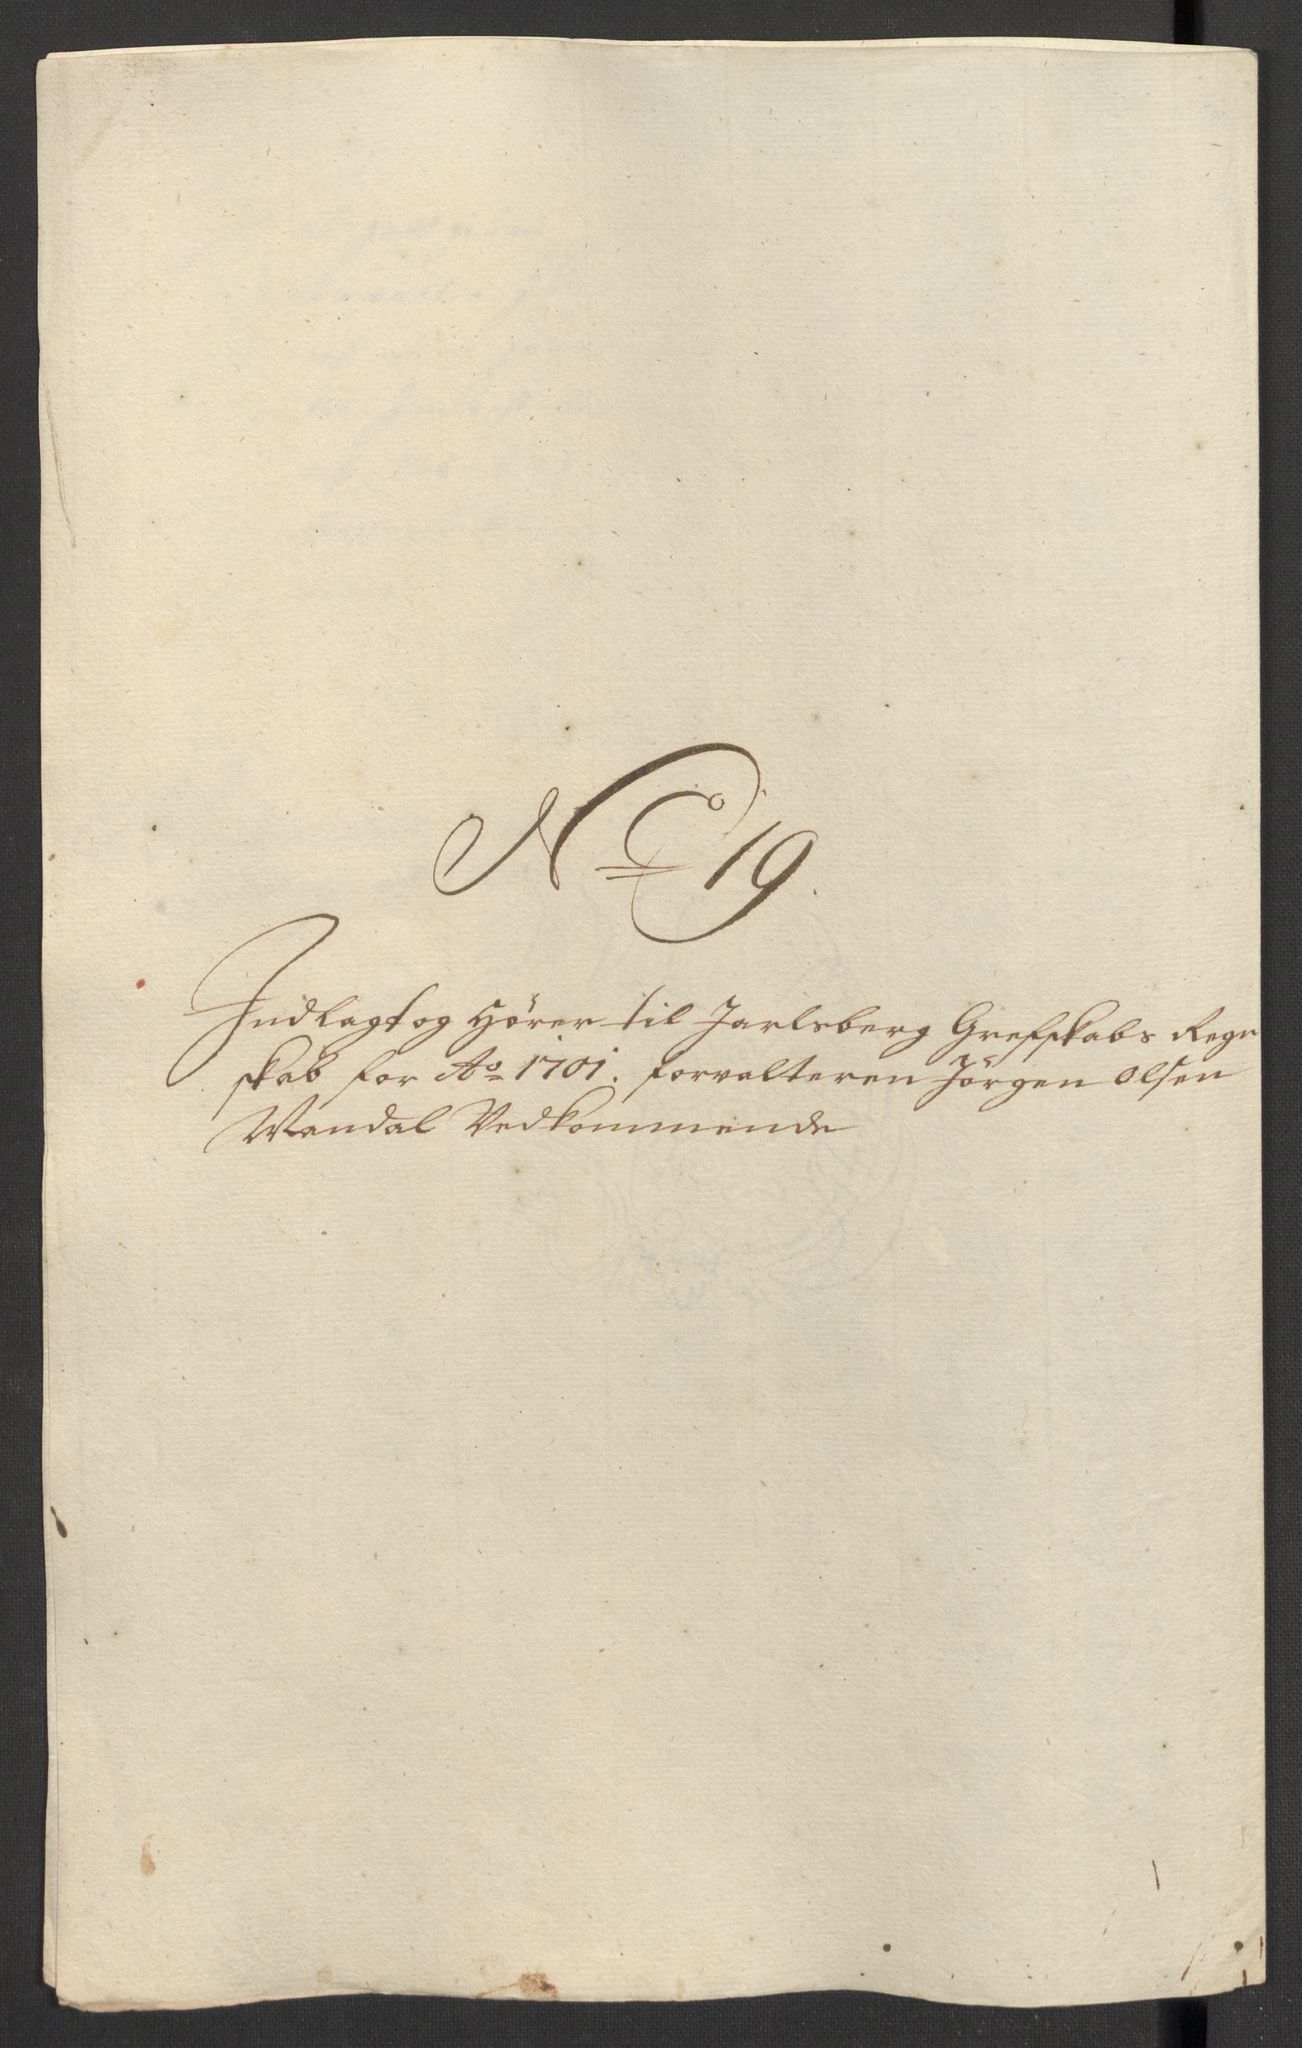 No 19.
Indlagt og Hører til Jarlsberg Grefskabs Regn
skab for Ao 1701. forvalteren Jörgen Olsen
Wandal Vedkommende